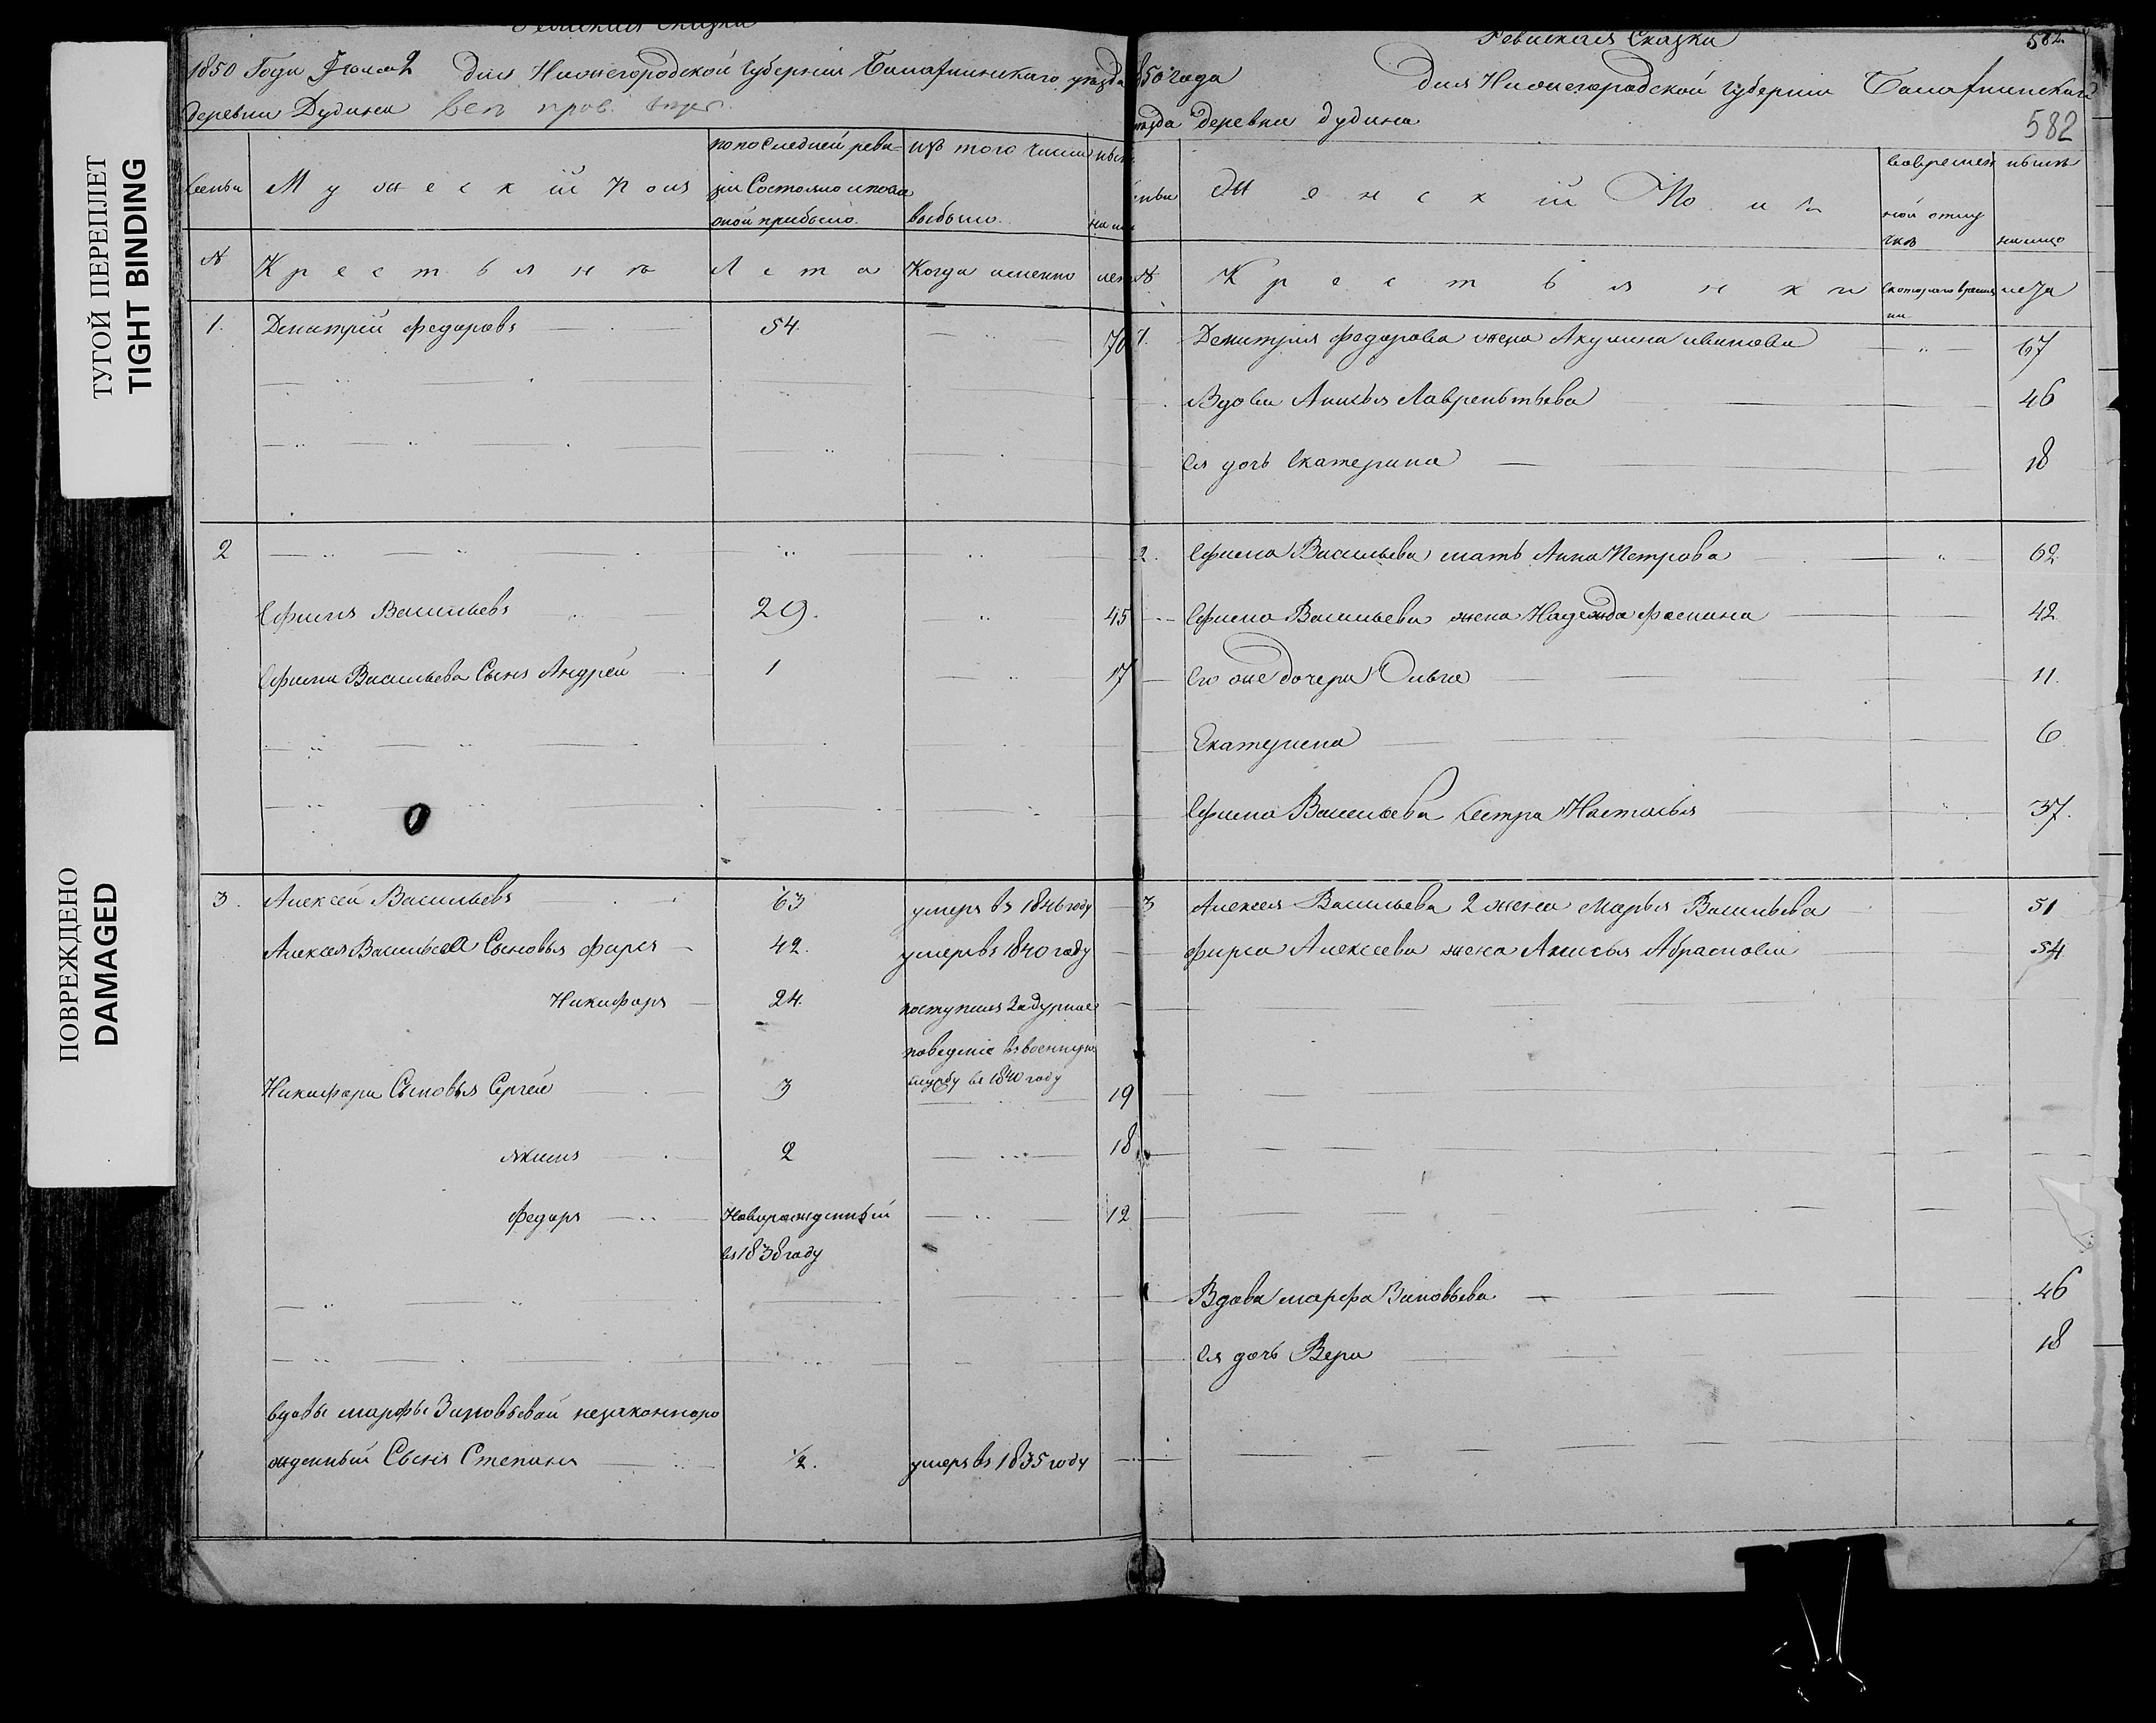 ТУГОЙ ПЕРЕПЛЕТ
TIGHT BINDING
ПОВРЕЖДЕНО
DAMAGED
Ревиская Сказка
1850 Года Для Нижегородской Губернiи Балахнинскаго уезда
деревни Дудина
семьи Мужескiй Пол
по последней реви-
зiи Состояло и после
оной прибыло.
из того числа
выбыло.
№ Крестьяне Лета Когда именно лет
1. Дмитрiй Федоровъ 54 70
2
Ефимъ Васильевъ 29. 45
Ефима Васильева Сынъ Андрей 1 17
3. Алексей Васильевъ 63 умеръ въ 1846 году
Алексея Васильева Сыновья Фирсъ 42. умеръ въ 1840 году
Никифоръ 24. поступилъ за дурное
поведенiе въ военную
службу въ 1840 году
Никифора Сыновья Сергей 3 19
Якимъ 2 18
Федоръ Новорожденный 12
въ 1838 году
вдовы марфы Зиновьевой незаконноро
жденный Сынъ Степанъ 1/2. умеръ въ 1835 году
Ревиская Сказка 582
850 года Для Нижегородской Губернiи Балахнинскаго
уезда деревни Дудина
582
Женскiй Пол
во времен
ной отлу
чке
ныне
на лицо
№ Крестьянки с котораго време
ни
лета
1. Дмитрiя Федорова жена Акулина иванова 67
Вдова Анисья Лаврентьева 46
Ея дочь Екатерина 18
2. Ефима Васильева мать Анна Петрова 62
Ефима Васильева жена Надежда Фомина 42
Его же дочери Ольга 11.
Екатерина 6
Ефима Васильева Сестра Наталья 37.
3 Алексея Васильева 2 жена Марья Васильева 51
Фирса Алексеева жена Анисья Абрамова 54
Вдова марфа Зиновьева 46
Ея дочь Вера 18